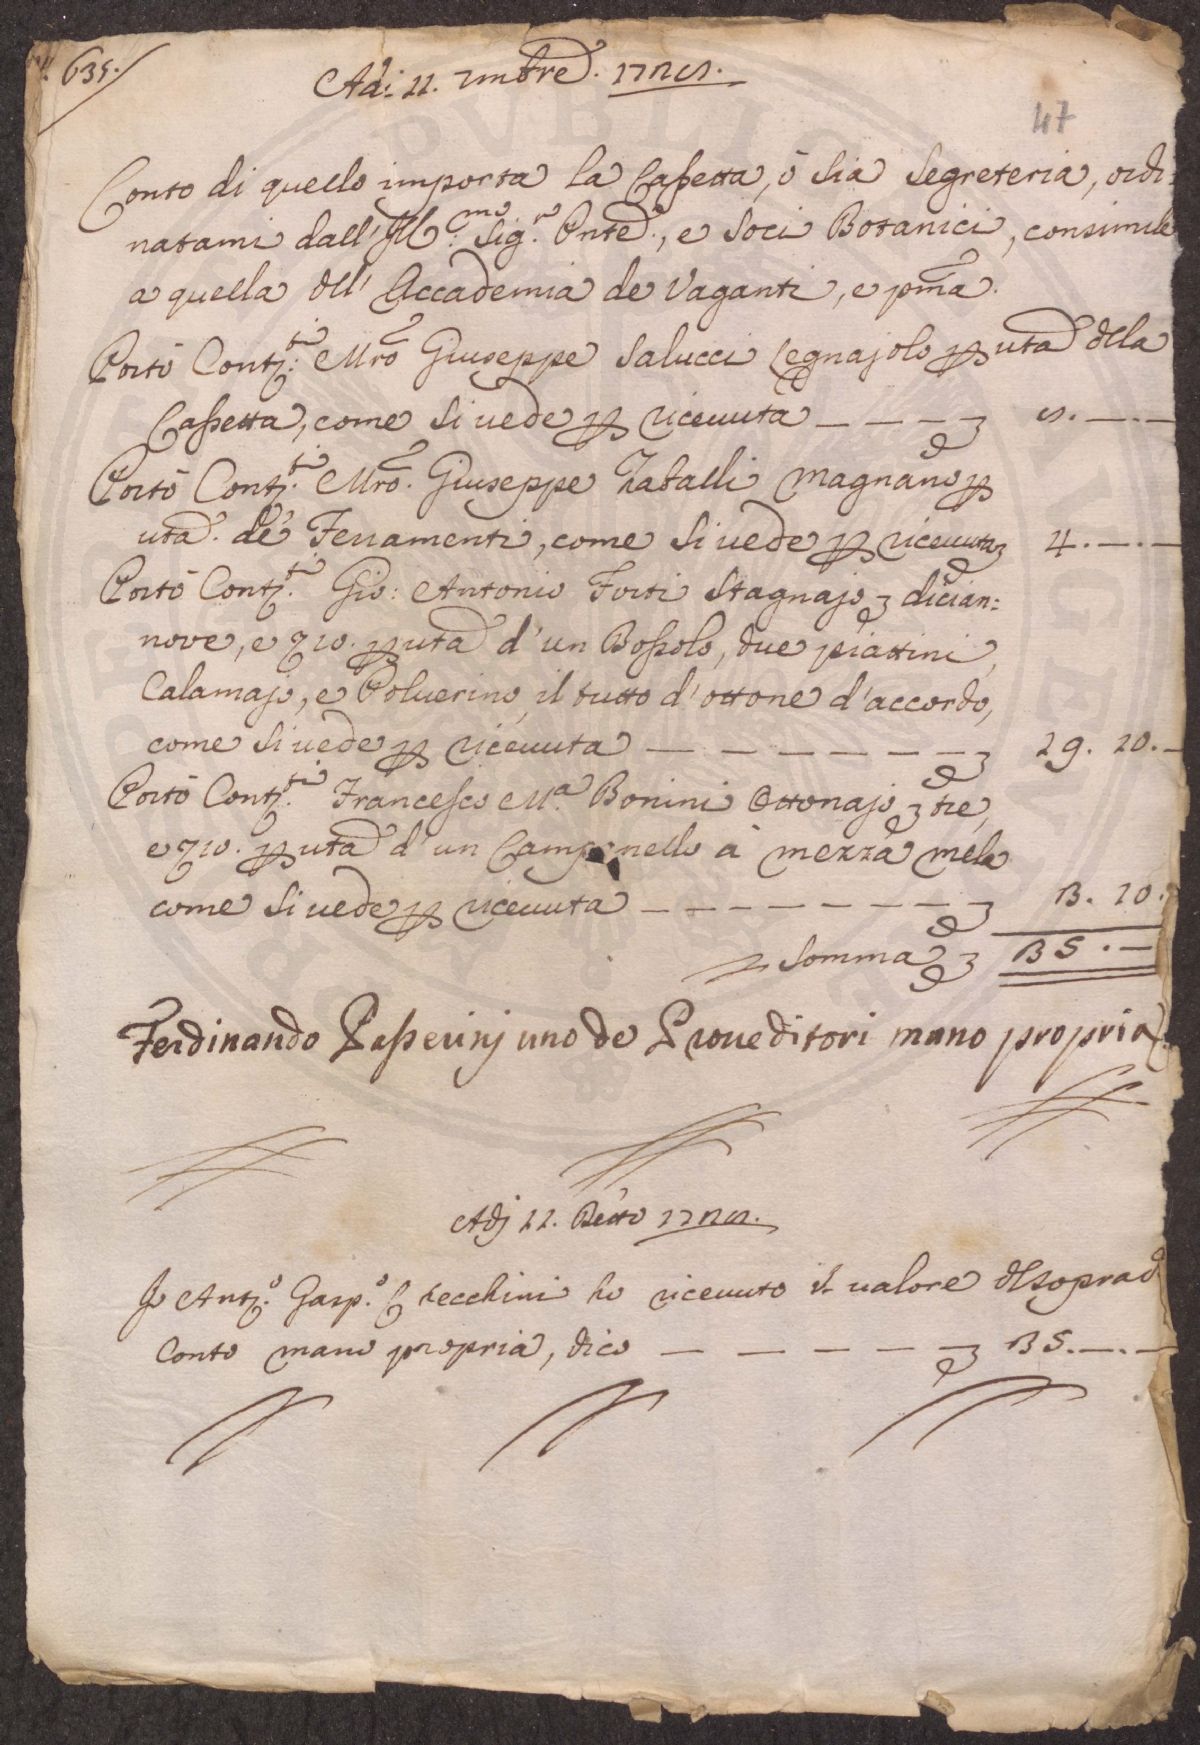 635.
Adi: 11. 7mbre. 1725.
47
Conto di quello importa la Cassetta, ò sia Segreteria, ordi:
natami dall' Ill:mo Sig:r Pnte., e Soci Botanici, consimile
a quella dell' Accademia de Vaganti, e pma.
Portò Contj:ti Mro Giuseppe Salucci Legnajolo p uta della
Cassetta, come si vede p ricevuta — — — — 5. — . —
Portò Contj:ti Mro. Giuseppe Zaballi Magnano p
uta. de Ferramenti, come si vede p ricevuta 4. — . —
Portò Contj:ti Gio: Antonio Forti Stagnajo dician:
nove, e 10. p uta d'un Bossolo, due piattini,
Calamajo, e Polverino, il tutto d'ottone d'accordo,
come si vede p ricevuta — — — — — — — 19. 10. —
Portò Contj:ti Francesco M:a Bonini Ottonajo tre,
e 10. p uta d'un Campanello à mezza mela
come si vede p ricevuta — — — — — — — — 3. 10.
Somma 35 . —
Ferdinando Passerinj uno de Proveditori mano propria
Adj 11. Detto 1725.
Jo Antj:o Gasp:o Checchini ho ricevuto il valore del soprad
Conto mano propria, dico — — — — — 35. — . —